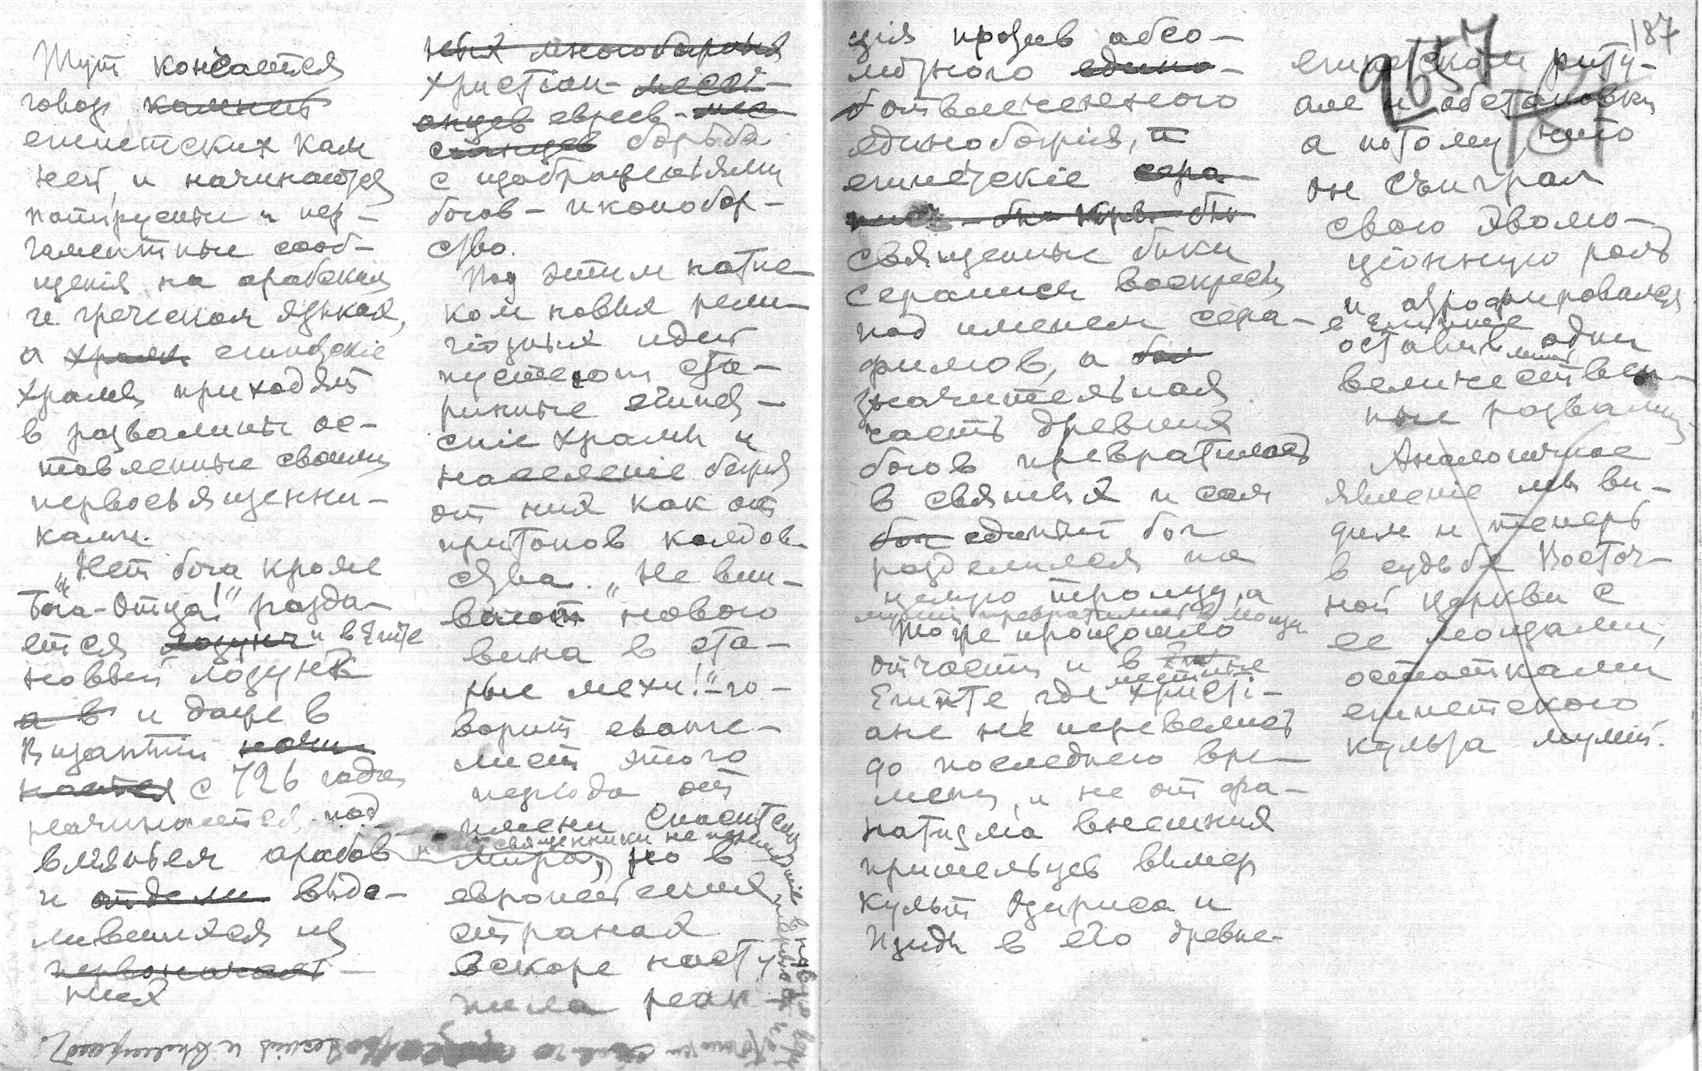 Тут кончается
говор камней
египетских кам
ней, и начинаются
папирусные и пер-
гаментные сооб-
щенія на арабском
и греческом языках,
а храмы египетскіе
храмы приходят
в развалины ос-
тавленные своими
первосвященни-
ками.
"Нет бога кроме
Бога-Отца!" разда-
ется лозунг и в Египте
новый лозунг
а в и даже в
Византіи начи-
нается с 726 года
начинается под
вліяньем арабов
и отдели выде-
лившихся из
первоначаль-
ных
ных многобожных
христіан- месси-
анцев евреев-мес
сианцев борьба
с изображеньями
богов - иконобор-
ство.
Под этим натис-
ком новых рели-
гіозных идей
пустеют ста-
ринные египет-
скіе храмы и
населеніе бежит
от них как от
притонов колдов-
ства. "Не вли-
вают нового
вина в ста-
рые мехи!"- го-
ворит еванге-
лист этого
періода от
имени Спасителя
мира, но в
европейских
странах
вскоре насту-
пила реак-
187
9657
181
ція против абсо-
лютного едино-
б отвлеченного
единобожия, и
египетскіе сера
священные быки
Сераписы воскресли
под именем сера-
фимов, а бы
значительная
часть древних
богов превратилась
в святых и сам
бог единый бог
разделился на
целую троицу, а
муміи превратились в мощи
Тоже произошло
отчасти и в
местные
Египте, где христі-
ане не перевелись
до последнего вре-
мени, и не от фа-
натизма внешних
пришельцев вымер
культ Озириса и
Изиды в его древне-
египетском риту-
але и обстановки
а потому что
он сыграл
свою эволю-
ціонную роль
и атрофировался
в Египте
оставив лишь одни
величествен-
ные развалины
Аналогичное
явленіе мы ви-
дим и теперь
в судьбе Восточ-
ной церкви с
ее мощами,
остатками
египетского
культа мумій.